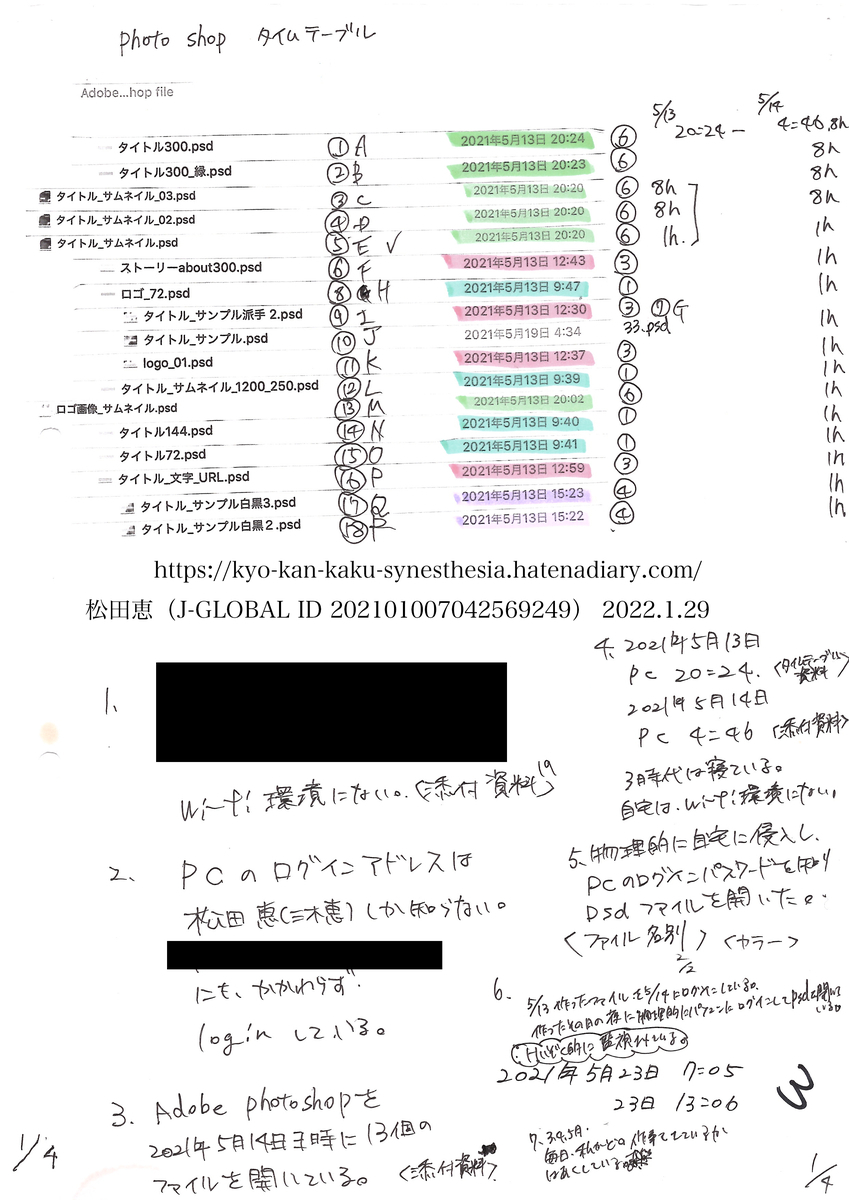 photo shop タイムテーブル
Adobe...hop file
5/13 5/14
20=24 ー 4=46.8h
タイトル300.psd ① A 2021年5月13日 20:24 ⑥ 8h
タイトル300_縁.psd ② B 2021年5月13日 20:23 ⑥ 8h
タイトル_サムネイル_03.psd ③ C 2021年5月13日 20:20 ⑥ 8h 8h
タイトル_サムネイル_02.psd ④ D 2021年5月13日 20:20 ⑥ 8h 1h
タイトル_サムネイル.psd ⑤ E ✓ 2021年5月13日 20:20 ⑥ 1h. 1h
ストーリーabout300.psd ⑥ F 2021年5月13日 12:43 ③ 1h
ロゴ_72.psd ⑧ H 2021年5月13日 9:47 ① 1h
タイトル_サンプル派手 2.psd ⑨ I 2021年5月13日 12:30 ③ ⑦ G 1h
タイトル_サンプル.psd ⑩ J 2021年5月19日 4:34 33.psd 1h
logo_01.psd ⑪ K 2021年5月13日 12:37 ③ 1h
タイトル_サムネイル_1200_250.psd ⑫ L 2021年5月13日 9:39 ① 1h
ロゴ画像_サムネイル.psd ⑬ M 2021年5月13日 20:02 ⑥ 1h
タイトル144.psd ⑭ N 2021年5月13日 9:40 ① 1h
タイトル72.psd ⑮ O 2021年5月13日 9:41 ① 1h
タイトル_文字_URL.psd ⑯ P 2021年5月13日 12:59 ③ 1h
タイトル_サンプル白黒3.psd ⑰ Q 2021年5月13日 15:23 ④ 1h
タイトル_サンプル白黒2.psd ⑱ R 2021年5月13日 15:22 ④
https://kyo-kan-kaku-synesthesia.hatenadiary.com/
松田恵（J-GLOBAL ID 202101007042569249） 2022.1.29
1、
Wi-fi 環境にない。〈添付資料〉19
2、PCのログインアドレスは
松田恵(三木恵)しか知らない。
にも、かかわらず
login している。
3. Adobe photoshopを
2021年5月14日 時に13個の
ファイルを開いている。〈添付資料〉
1/4
4、2021年5月13日
PC 20=24. 〈タイムテーブル資料〉
2021年5月14日
PC 4=46 〈添付資料〉
3時代は寝ている。
自宅は、wi-fi環境にない。
5、物理的に自宅に侵入し、
PCのログインパスワードを知り
psd ファイルを開いた。
〈ファイル名別〉〈カラー〉
2/2
6、5/13 作ったファイルを5/14にログインしている。
作ったその日の に物理的にパソコンにログインしてpsdを開いている。
的に監視 いる。
2021年5月23日 7=05
23日 13=06
3
7、3.4.5月.
毎日、私が 作業 しているか
はあくしている。
1/4